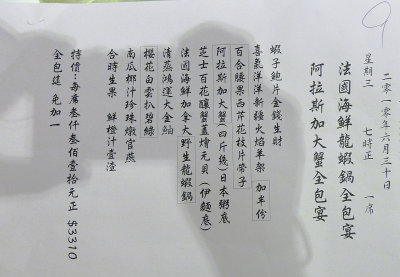 9
二零一零年六月三十日
星期三 七時正 一席
法國海鮮龍蝦鍋全包宴
阿拉斯加大蟹全包宴
蝦子鮑片金錢生財
喜氣洋洋新疆火焰羊架 加半份
百合腰果西芹花枝片帶子
阿拉斯加大蟹(四斤幾)日本粥底
芝士百花釀蟹蓋燴元貝(伊麵底)
法國海鮮加拿大野生龍蝦鍋
清蒸鴻運大金鼬
櫻花白雲扒碧綠
南瓜椰汁珍珠燉官燕
合時生果 鮮橙汁壹渣
特價:每席叁仟叁佰壹拾元正 $3310
全包筵 免加一